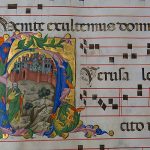 Venite exultemus domi
Jerusa le
cito